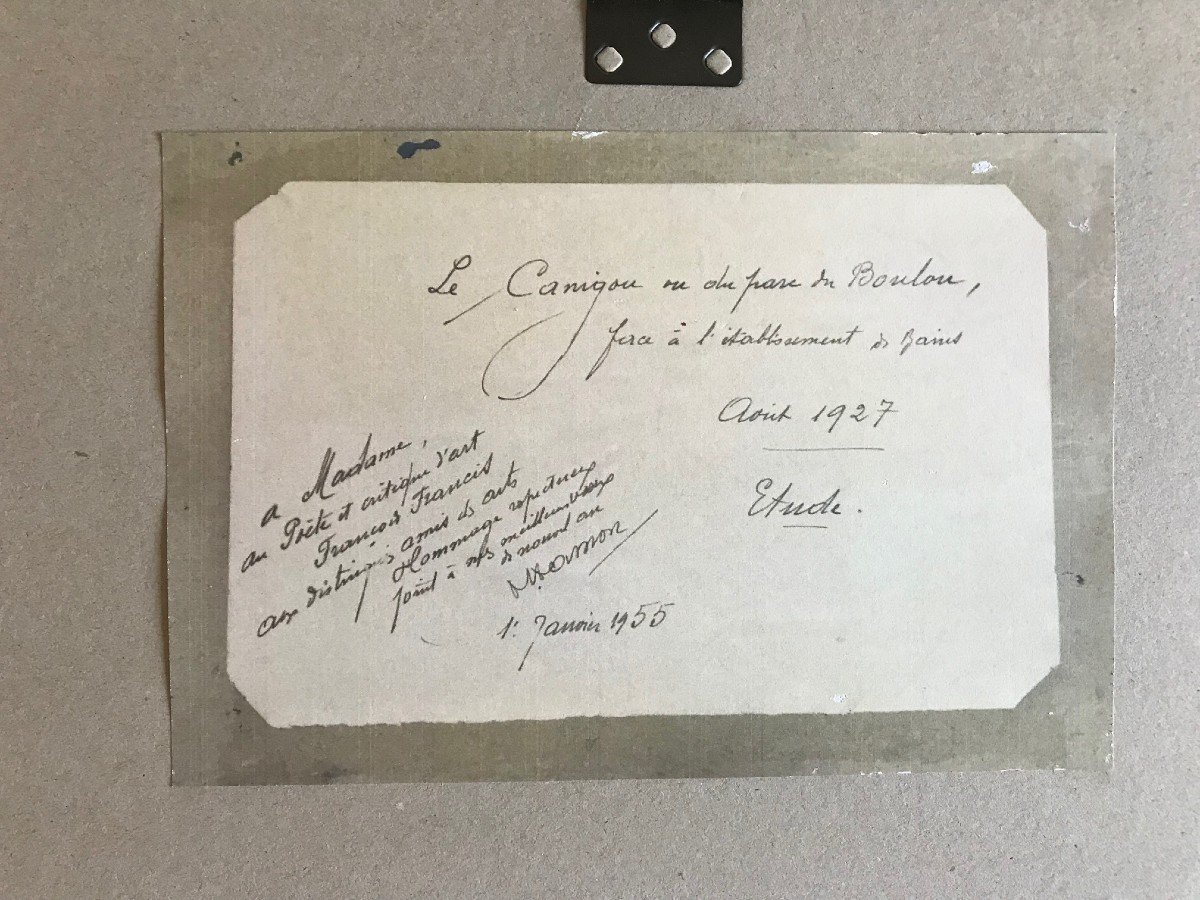 Le Canigou vu du parc du Boulou,
face à l'établissement de Bains
Août 1927
Etude.
a Madame,
au Poète et critique d'art
François Francis
aux distingués amis des arts
Hommage respectueux
joint à mes meilleurs vœux
de nouvel an
1er Janvier 1955